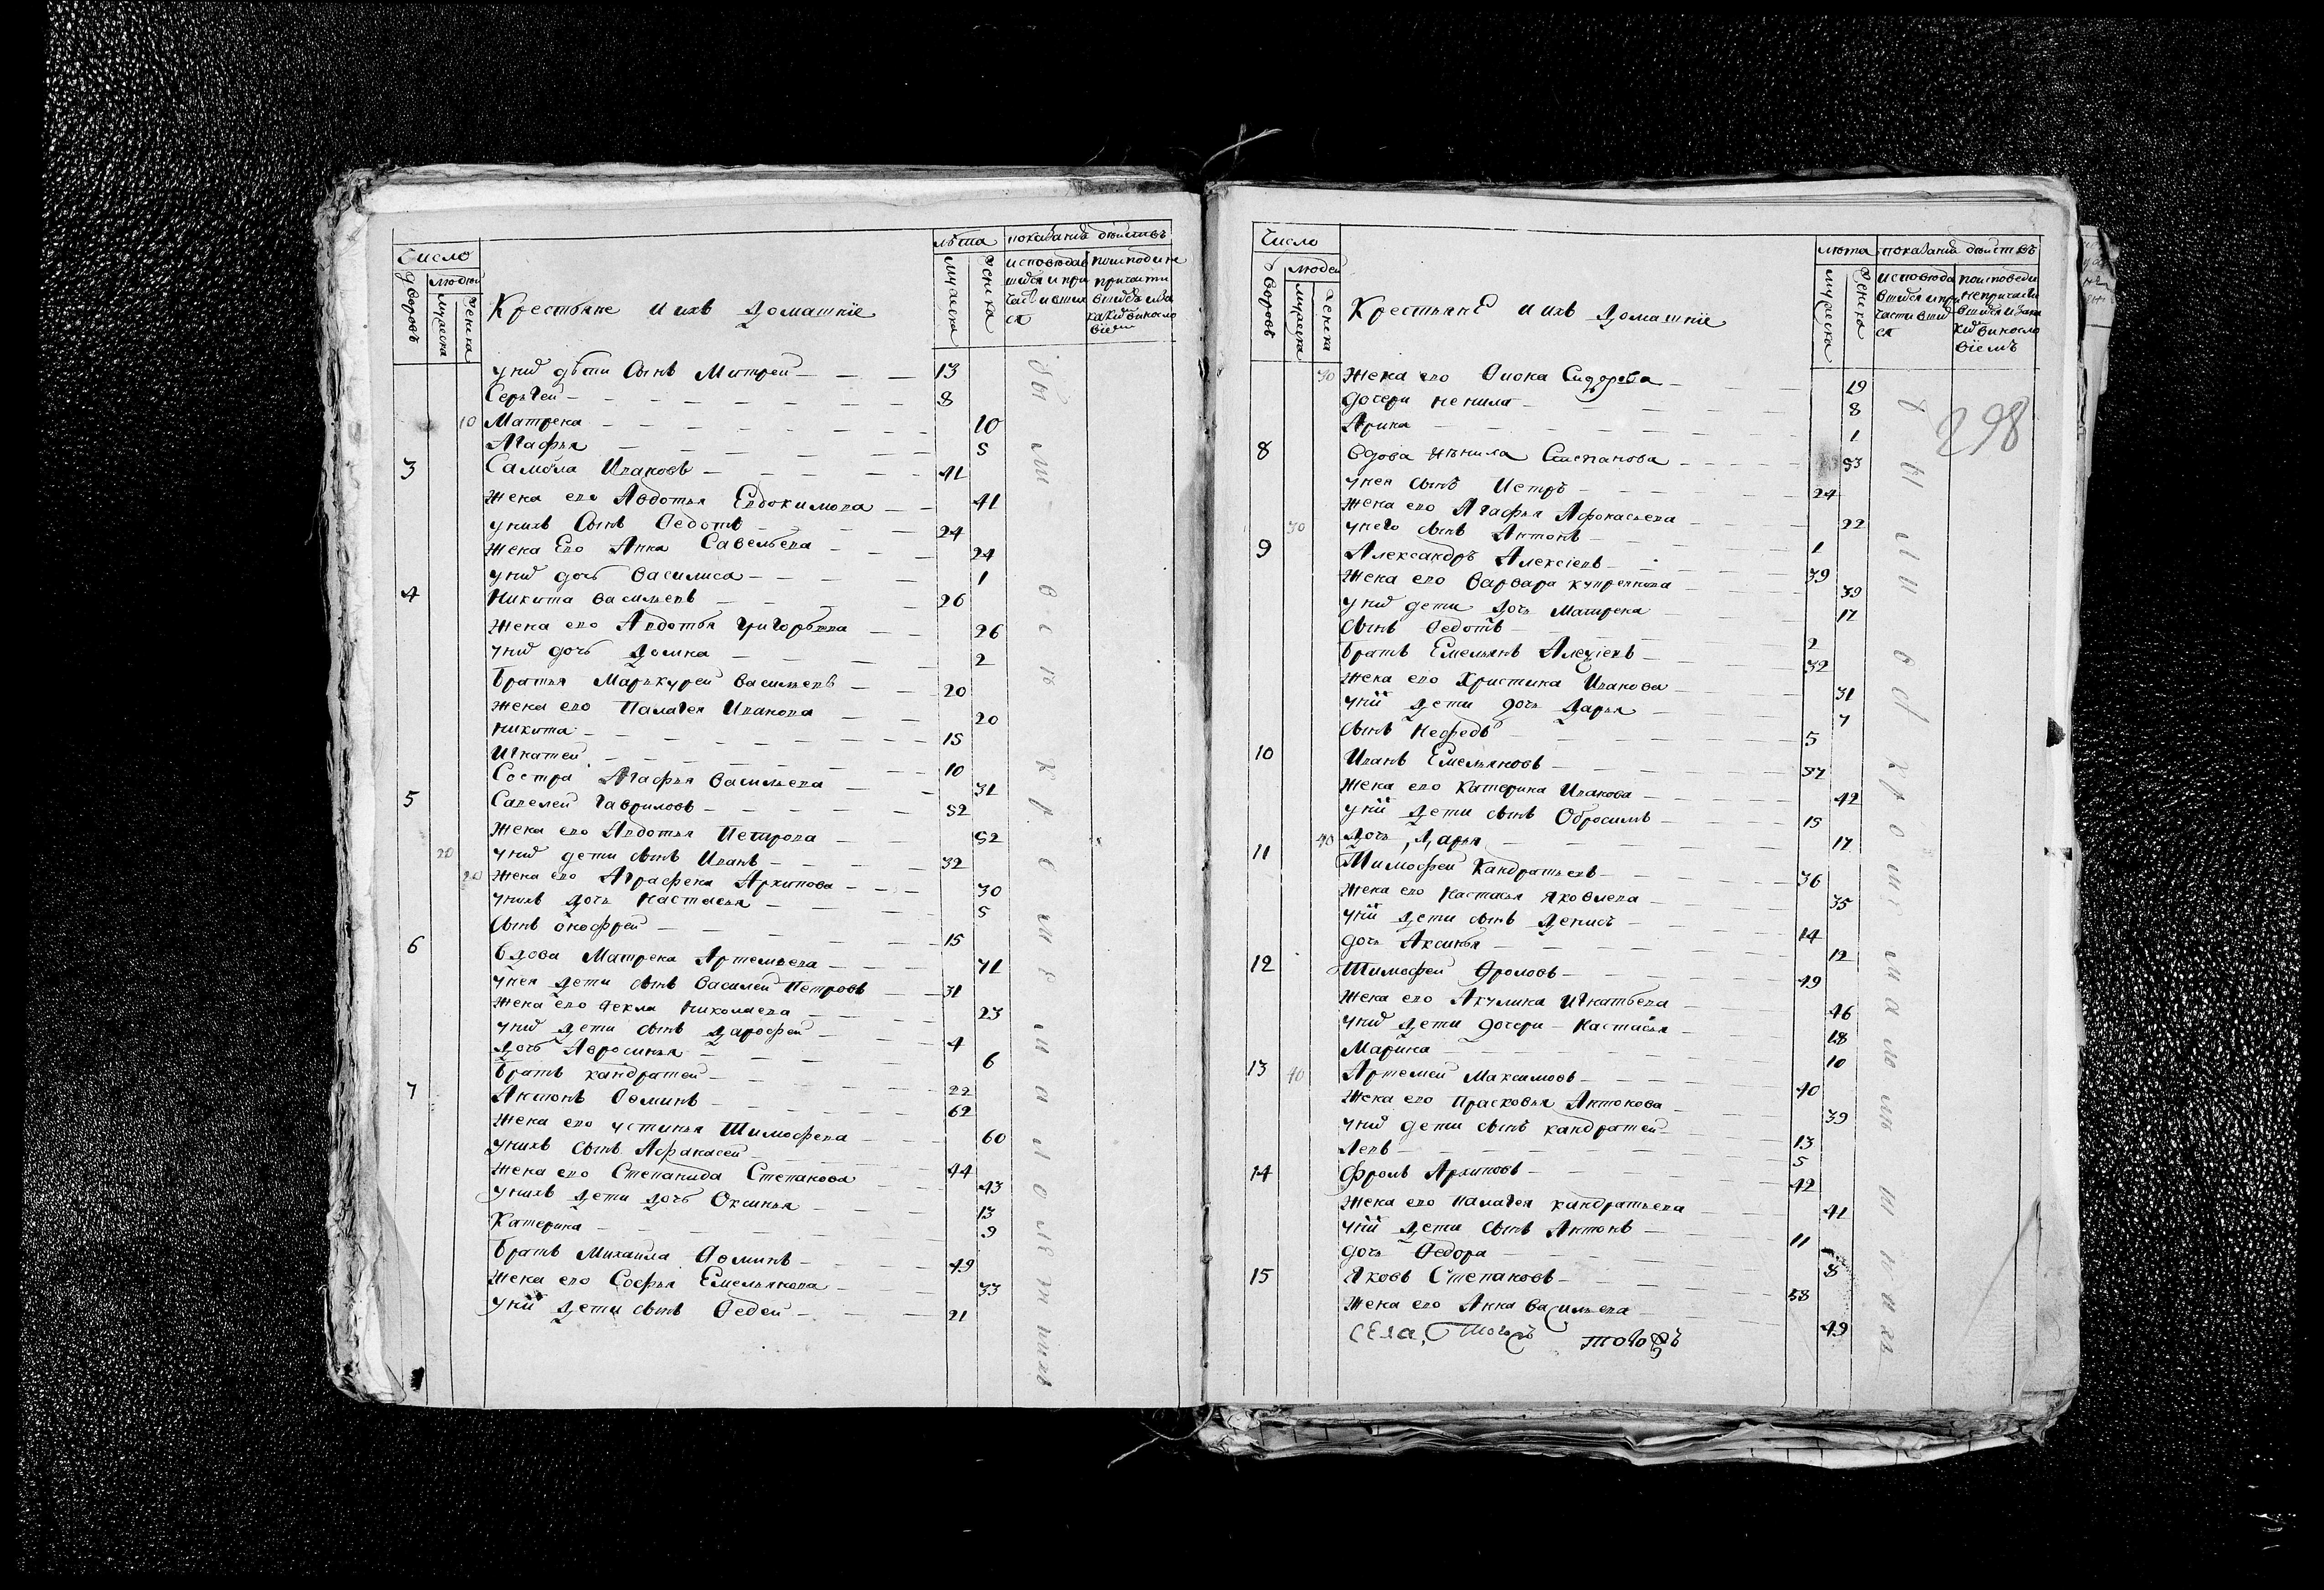 Число
лѣта показаниѧ действъ
дворовъ
людей
мужеска
женска
Крестьяне и ихъ домашніе
мужеска
женска
унихъ дѣти Сынъ Митрей 13
Сергей 8
10 Матрена 10
Агафья 5
3 Самойла Ивановъ 41
Жена его Авдотья Евдокимова 41
унихъ Сынъ Федотъ 24
Жена Его Анна Савельева 24
унихъ дочь Василиса 1
4 Никита Васильевъ 26
Жена его Авдотья Григорьева 26
унихъ дочь Домна 2
братья Маркурей Васильевъ 20
Жена его Палагея Иванова 20
Никита 15
Игнатей 10
Состра Агафья Васильева 31
5 Савелей Гавриловъ 52
Жена его Авдотья Петрова 52
20 унихъ дети сынъ Иванъ 32
20 Жена его Аграфена Архипова 30
унихъ дочь Настасья 5
сынъ онофрей 15
6 вдова Матрена Артемьева 71
унея дети сынъ Василей Петровъ 31
Жена его Фекла Николаева 23
унихъ дети сынъ Дарофей 4
дочь Авросинья 6
братъ кандратей 22
7 Антонъ Фоминъ 62
Жена его устинья Тимофева 60
унихъ сынъ Афанасей 44
Жена его Степанида Степанова 43
унихъ дети дочь Оксинья 13
Катерина 9
братъ Михаила Фоминъ 49
Жена его Софья Емельянова 33
униӣ дети сынъ Федей 21
были в с ѣ
Число
лѣта показаниѧ действъ
дворовъ
людей
мужеска
женска
Крестьянѣ и ихъ домашніе
мужеска
женска
298
30 Жена его Фиона Сидорова 19
дочери ненила 8
Арина 1
8 вдова ненила Степанова 53
унея сынъ Петръ 24
Жена его Агафья Афонасьева 22
30 унего сынъ Антонъ 1
9 Александръ Алексіевъ 39
Жена его Варвара куприянова 39
унихъ дети дочь Матрена 17
сынъ Федотъ 2
братъ Емельянъ Алексіевъ 32
Жена его Христина Иванова 31
униӣ дети дочь Дарья 7
сынъ Нефедъ 5
10 Иванъ Емельяновъ 57
Жена его Катерина Иванова 42
униӣ дети сынъ Обросимъ 15
40 дочь Дарья 17
11 Тимофей Кандратьевъ 36
Жена его Настасья яковлева 35
униӣ дети сынъ Денисъ 14
дочь Аксинья 12
12 Тимофей Фроловъ 49
Жена его Акулина Игнатьева 46
унихъ дети дочери Настасья 18
Марина 10
13 40 Артемей Максимовъ 40
Жена его Прасковья Антонова 39
унихъ дети сынъ кандратей 13
Левъ 5
14 Фролъ Архиповъ 42
Жена его палагея кандратьева 41
униӣ дети сынъ Антонъ 11
дочь Федора 8
15 Яковъ Степановъ 58
Жена его Анна Васильева 49
села